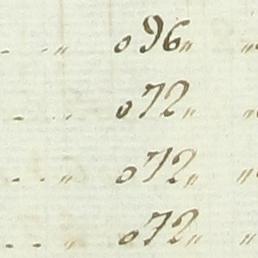 - .. „ 096„ „
- . . . 072„ „
- - „ 072„ „
- - „ 072„ „